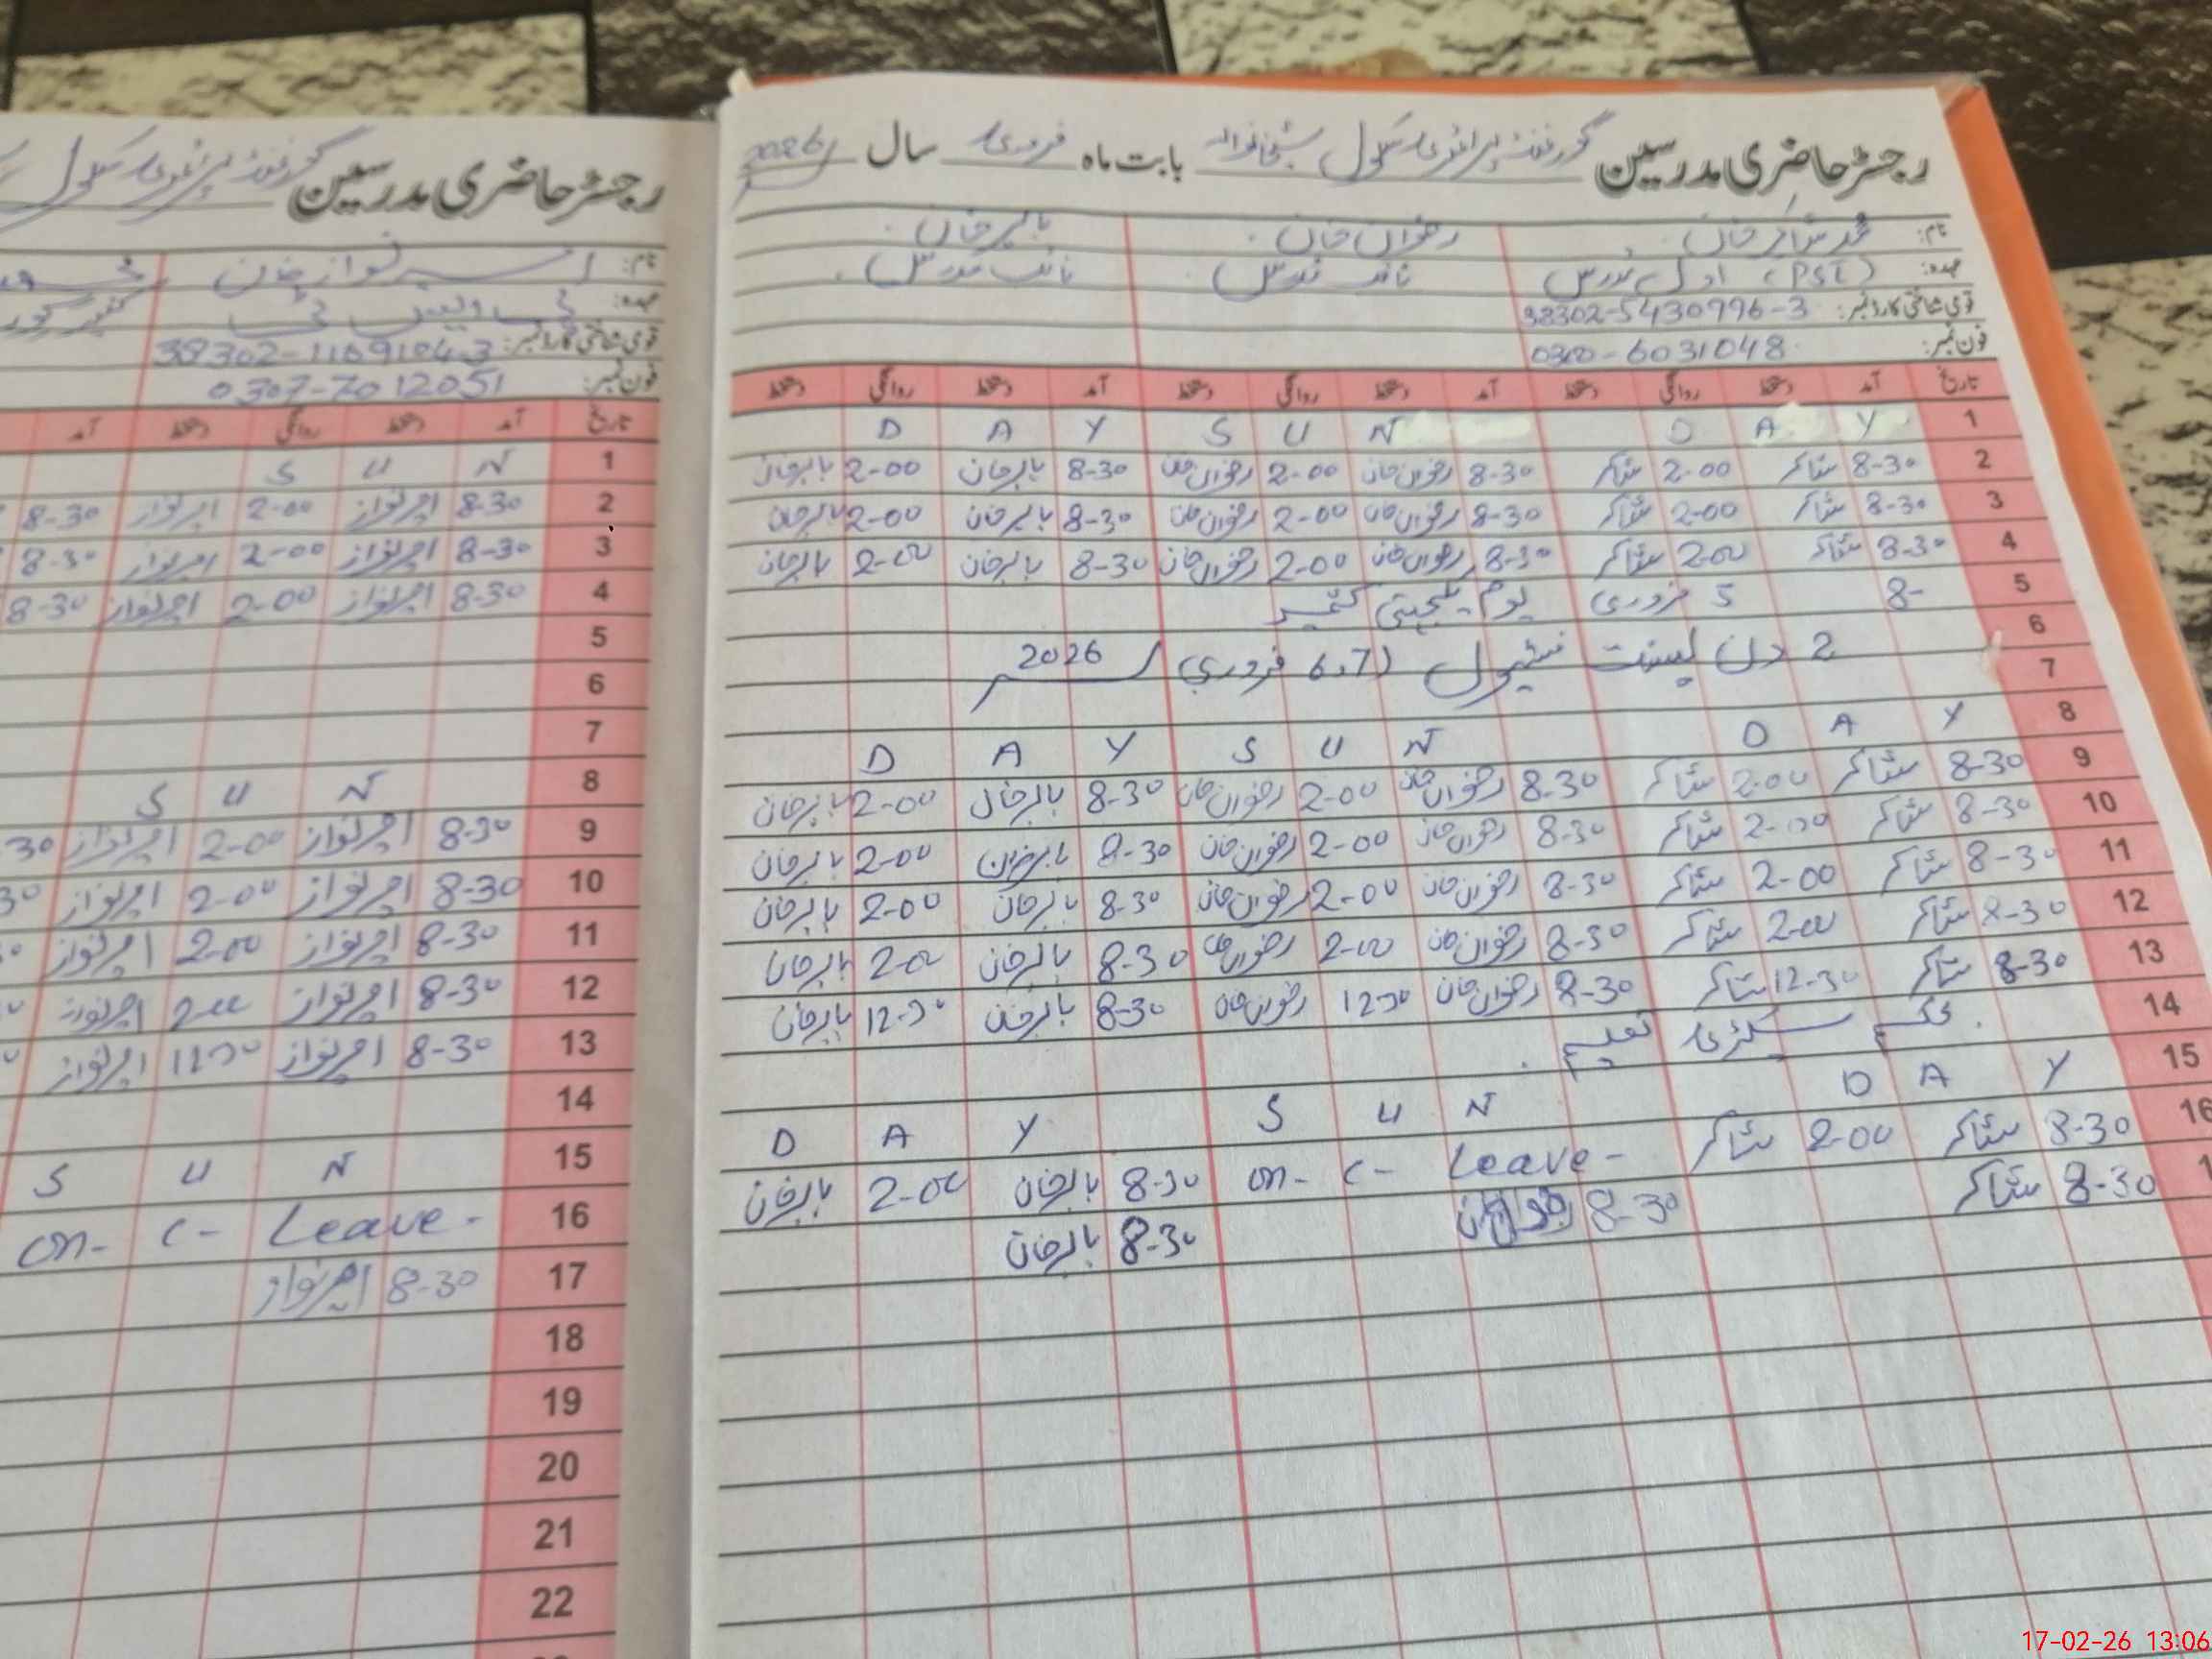 رجسٹر حاضری مدرسین گورنمنٹ پرائمری سکول بابت ماہ فروری سال 2026
نام: محمد شاکر خان رضوان خان بابر خان
عہدہ: (PST) اول مدرس نائب مدرس نائب مدرس
قومی شناختی کارڈ نمبر: 38302-5430996-3
فون نمبر: 0300-6031048
تاریخ آمد دستخط روانگی دستخط آمد دستخط روانگی دستخط آمد دستخط روانگی دستخط
1 Y A D N U S Y A D
2 8-30 شاکر 2-00 شاکر 8-30 رضوان خان 2-00 رضوان خان 8-30 بابر خان 2-00 بابر خان
3 8-30 شاکر 2-00 شاکر 8-30 رضوان خان 2-00 رضوان خان 8-30 بابر خان 2-00 بابر خان
4 8-30 شاکر 2-00 شاکر 8-30 رضوان خان 2-00 رضوان خان 8-30 بابر خان 2-00 بابر خان
5 8- 5 فروری یوم یکجہتی کشمیر
6 2 دن بسنت فیسٹیول (6،7 فروری) 2026
7
8 Y A D N U S Y A D
9 8-30 شاکر 2-00 شاکر 8-30 رضوان خان 2-00 رضوان خان 8-30 بابر خان 2-00 بابر خان
10 8-30 شاکر 2-00 شاکر 8-30 رضوان خان 2-00 رضوان خان 8-30 بابر خان 2-00 بابر خان
11 8-30 شاکر 2-00 شاکر 8-30 رضوان خان 2-00 رضوان خان 8-30 بابر خان 2-00 بابر خان
12 8-30 شاکر 2-00 شاکر 8-30 رضوان خان 2-00 رضوان خان 8-30 بابر خان 2-00 بابر خان
13 8-30 شاکر 12-30 شاکر 8-30 رضوان خان 12-30 رضوان خان 8-30 بابر خان 12-30 بابر خان
14 بحکم سیکرٹری تعلیم
15 Y A D N U S Y A D
16 8-30 شاکر 2-00 شاکر on- C- Leave- 8-30 بابر خان 2-00 بابر خان
1 8-30 شاکر 8-30 8-30 بابر خان
رجسٹر حاضری مدرسین گورنمنٹ پرائمری سکول
نام: امیر نواز خان
عہدہ:
قومی شناختی کارڈ نمبر: 38302-1169104-3
فون نمبر: 0307-7012051
تاریخ آمد دستخط روانگی دستخط آمد
1 N U S
2 8-30 امیر نواز 2-00 امیر نواز 8-30
3 8-30 امیر نواز 2-00 امیر نواز 8-30
4 8-30 امیر نواز 2-00 امیر نواز 8-30
5
6
7
8 N U S
9 8-30 امیر نواز 2-00 امیر نواز 30
10 8-30 امیر نواز 2-00 امیر نواز 30
11 8-30 امیر نواز 2-00 امیر نواز
12 8-30 امیر نواز 2-00 امیر نواز
13 8-30 امیر نواز امیر نواز
14
15 N U S
16 on- C- Leave-
17 8-30 امیر نواز
18
19
20
21
22
17-02-26 13:06